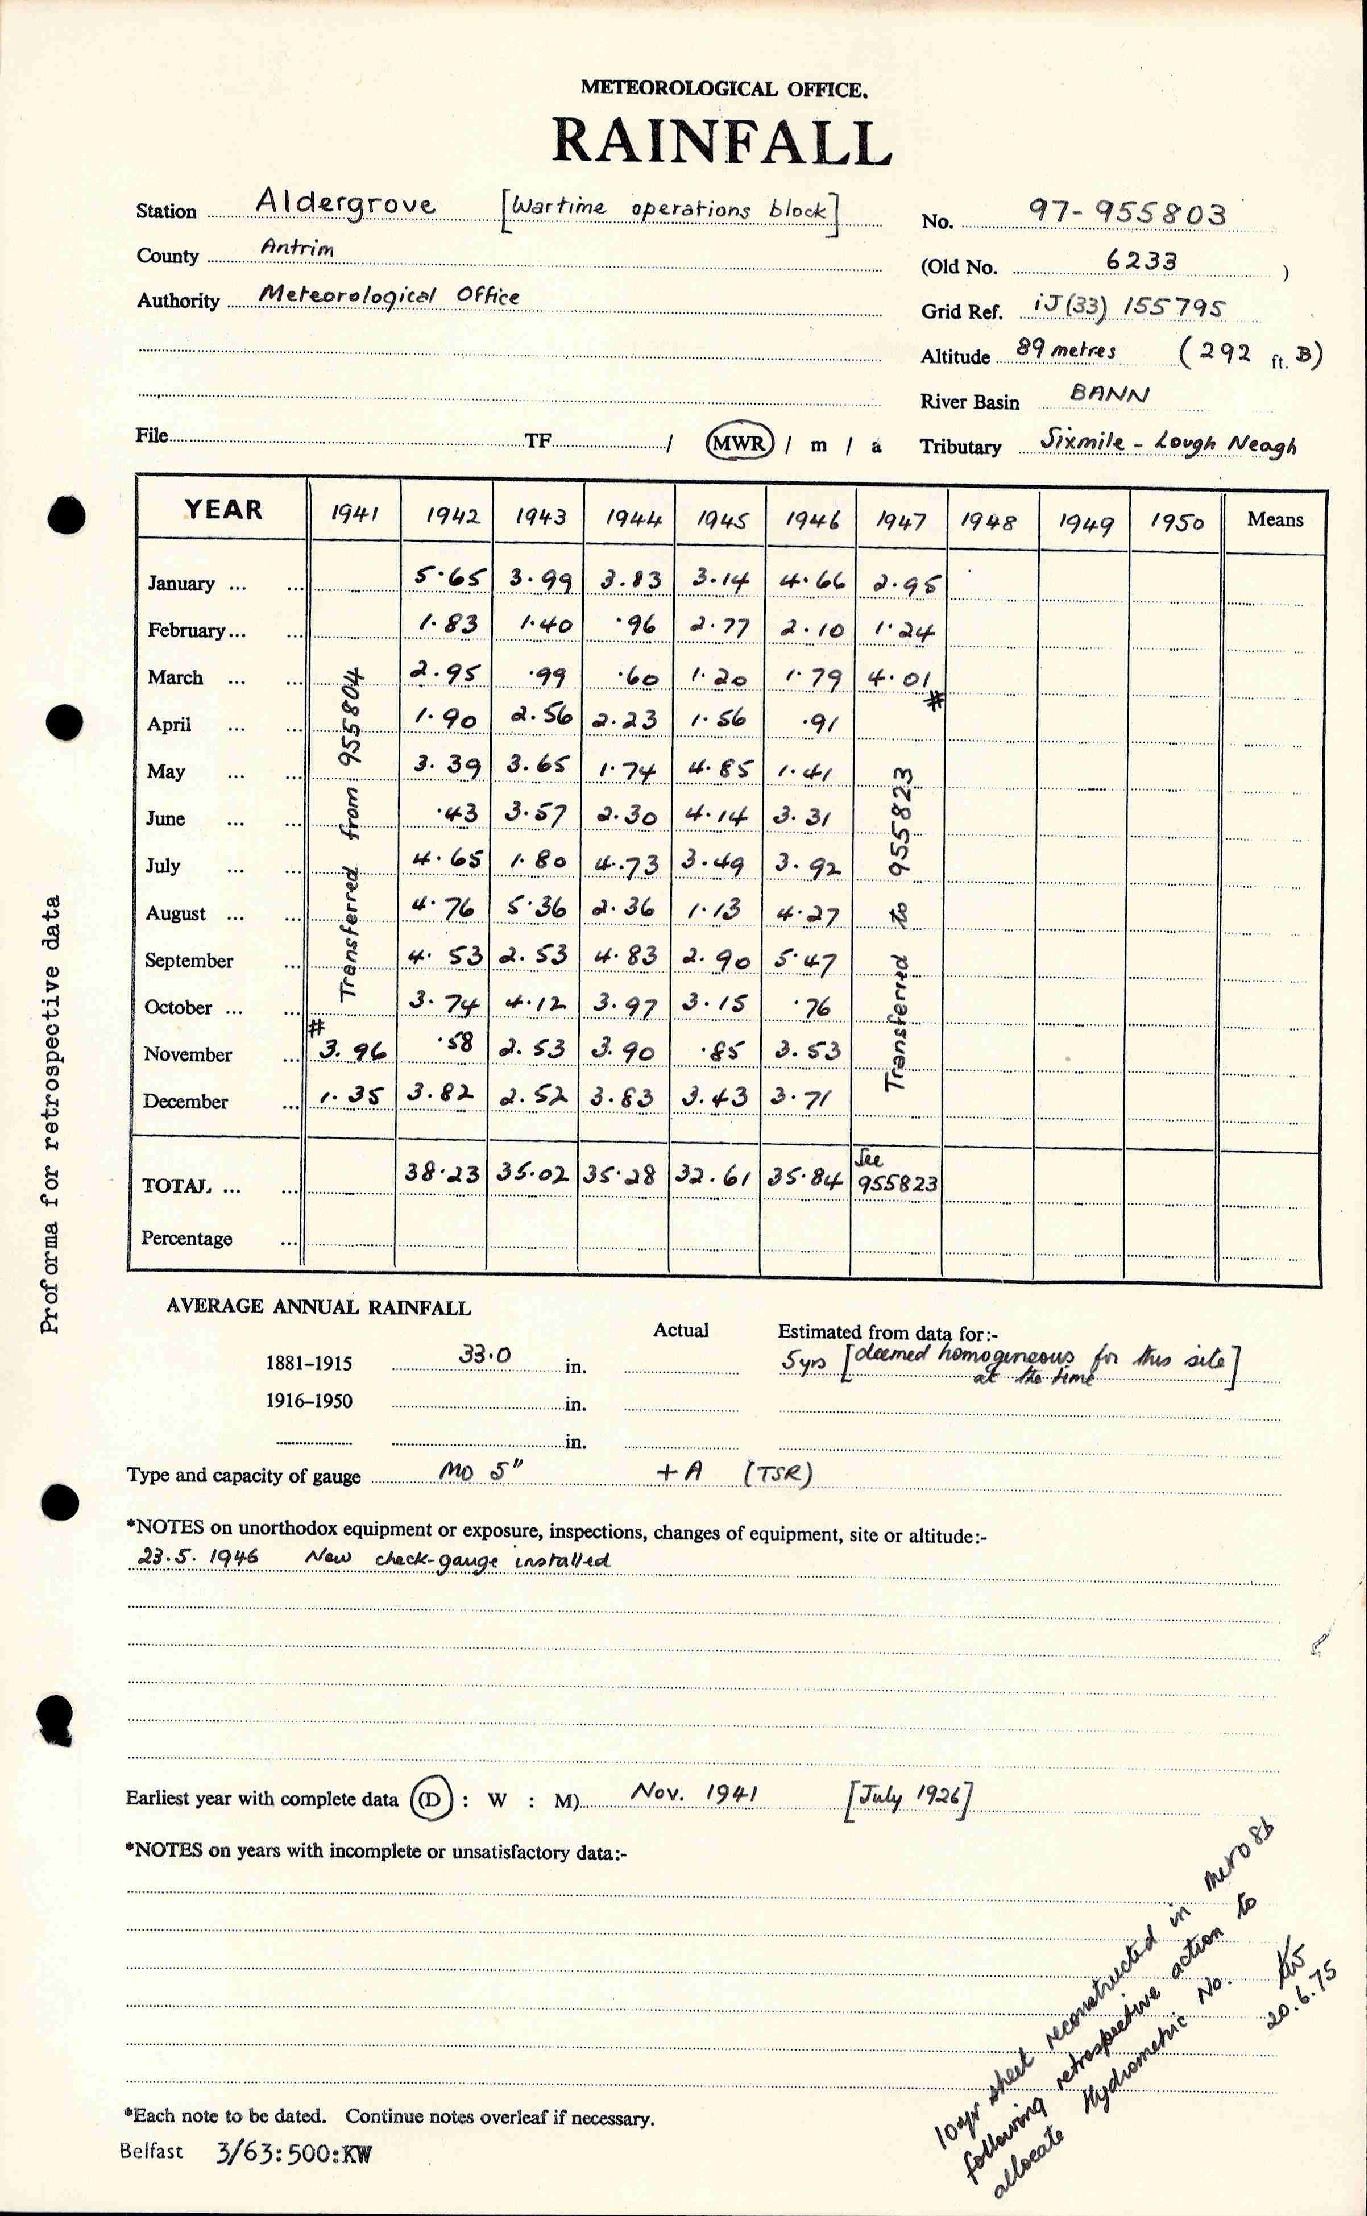 METEOROLOGICAL OFFICE.
RAINFALL
Station Aldergrove [Wartime operations block] No. 97-955803
County Antrim (Old No. 6233 )
Authority Meteorological Office Grid Ref. iJ(33) 155795
Altitude 89 metres (292 ft. B)
River Basin BANN
File TF / MWR / m / a Tributary Sixmile - Lough Neagh
YEAR 1941 1942 1943 1944 1945 1946 1947 1948 1949 1950 Means
January ... ... 5.65 3.99 3.83 3.14 4.66 2.95
February ... ... 1.83 1.40 .96 2.77 2.10 1.24
March ... ... 2.95 .99 .60 1.20 1.79 4.01 #
April ... ... 1.90 2.56 2.23 1.56 .91
May ... ... 3.39 3.65 1.74 4.85 1.41
June ... ... .43 3.57 2.30 4.14 3.31
July ... ... 4.65 1.80 4.73 3.49 3.92
August ... ... 4.76 5.36 2.36 1.13 4.27
September ... 4.53 2.53 4.83 2.90 5.47
October ... ... 3.74 4.12 3.97 3.15 .76
November ... # 3.96 .58 2.53 3.90 .85 3.53
December ... 1.35 3.82 2.52 3.83 3.43 3.71
Transferred from 955804
Transferred to 955823
TOTAL ... ... 38.23 35.02 35.28 32.61 35.84 See 955823
Percentage ...
AVERAGE ANNUAL RAINFALL
Actual Estimated from data for:-
1881-1915 33.0 in. 5yrs [deemed homogeneous for this site]
at the time
1916-1950 in.
in.
Type and capacity of gauge MO 5" + A (TSR)
*NOTES on unorthodox equipment or exposure, inspections, changes of equipment, site or altitude:-
23.5.1946 New check-gauge installed
Earliest year with complete data (D : W : M) Nov. 1941 [July 1926]
*NOTES on years with incomplete or unsatisfactory data:-
10yr sheet reconstructed in Met O 8b
following retrospective action to
allocate Hydrometric No. KW
20.6.75
*Each note to be dated. Continue notes overleaf if necessary.
Belfast 3/63:500:KW
Proforma for retrospective data